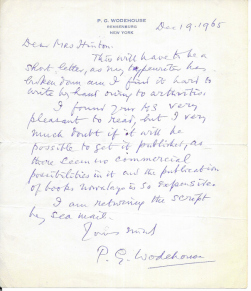 P. G. WODEHOUSE
REMSENBURG
NEW YORK
Dec 19. 1965
Dear Mrs Hinton.
This will have to be a
short letter, as my typewriter has
broken down and I find it hard to
write by hand owing to arthritis.
I found your MS very
pleasant to read, but I very
much doubt if it will be
possible to get it published, as
there seem no commercial
possibilities in it and the publication
of books nowadays is so expensive.
I am returning the script
by sea mail.
Yours sincerely
P. G. Wodehouse